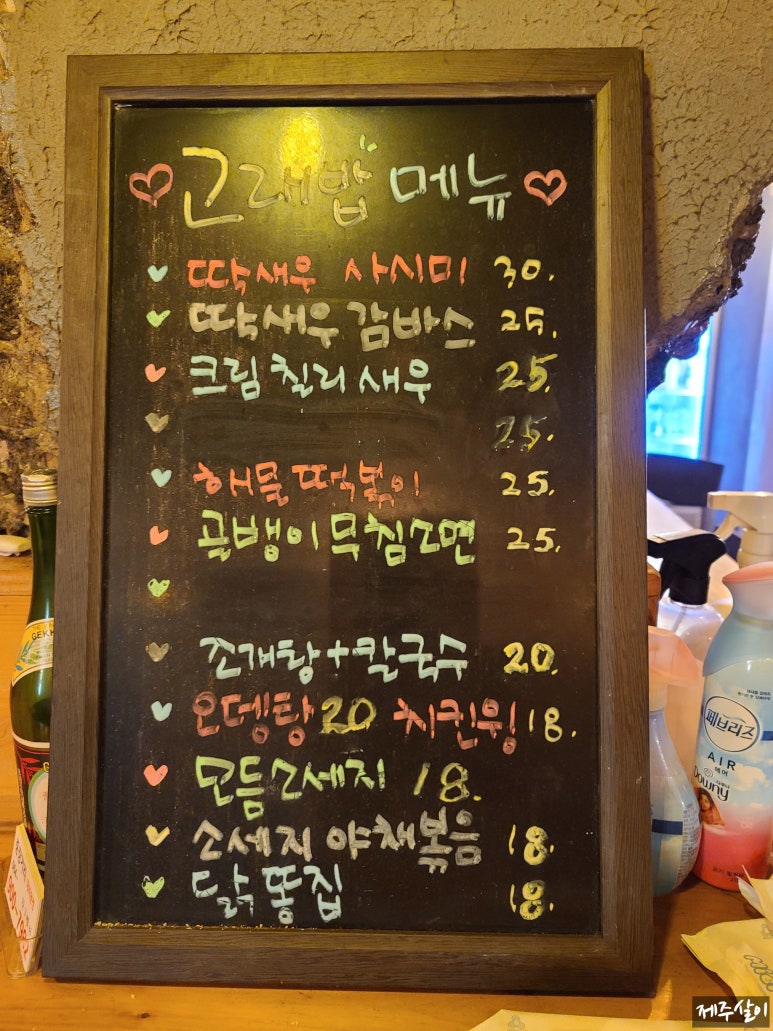 고래밥 메뉴
딱새우 사시미 30.
딱새우 감바스 25.
크림 칠리 새우 25.
25.
해물떡볶이 25.
골뱅이무침소면 25.
조개탕+칼국수 20.
오뎅탕 20 치킨윙 18.
모듬소세지 18.
소세지 야채볶음 18.
닭똥집 18.
페브리즈
AIR
에어
Downy
제주살이